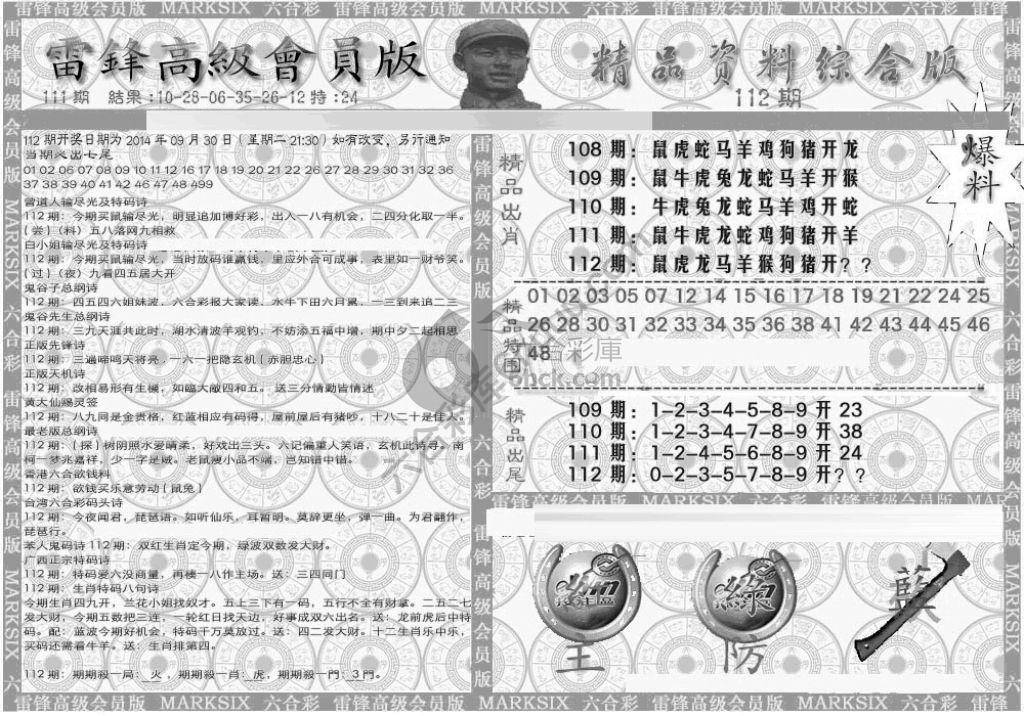 雷锋高级会员版 MARKSIX 六合彩 雷锋高级会员版 MARKSIX 六合彩 雷锋高级会员版 MARKSIX 六合彩 雷锋
雷鋒高級會員版
精品资料综合版
111期 結果:10-28-06-35-26-12特:24
112期
爆料
112期开奖日期为2014年09月30日(星期二21:30)如有改变，另行通知
当期入出七尾
01 02 06 07 08 09 10 11 12 16 17 18 19 20 21 22 26 27 28 29 30 31 32 36
37 38 39 40 41 42 46 47 48 499
曾道人输尽光及特码诗
112期：今期买鼠输尽光，明显追加博好彩，出入一八有机会，二四分化取一半。
(尝)(料)五八落网九相救
白小姐输尽光及特码诗
112期：今期买鼠输尽光，当时放码谁赢钱，里应外合可成事，表里如一财爷笑。
(过)(夜)九看四五居大开
鬼谷子总纲诗
112期：四五四六姐妹波，六合彩报大家读，水牛下田六月累，一三到来追二三
鬼谷先生总纲诗
112期：三九天涯共此时，湖水清波羊观钓，不妨添五福中增，期中夕二起相思
正版先锋诗
112期：三遍啼鸣天将亮，一六一把隐玄机(赤胆忠心)
正版天机诗
112期：改相易形有生機，如臨大敵四和五。送三分情勤皆情迷
黄大仙赐灵签
112期：八九同是金贵格，红蓝相应有码得，屋前屋后有猪吵，十八二十是佳人。
最老版总纲诗
112期：(探)树阴照水爱晴柔，好戏出三头。六记偏重人笑语，玄机此诗寻。南
柯一梦兆嘉祥，少一字是贼。老鼠瘦小品不端，岂知错中错。
香港六合欲钱料
112期：欲钱买乐意劳动(鼠兔)
台湾六合彩码头诗
112期：今夜闻君，琵琶语。如听仙乐，耳暂明。莫辞更坐，弹一曲。为君翻作，
琵琶行。
苯人鬼码诗112期：双红生肖定今期，绿波双数发大财。
广西正宗特码诗
112期：特码爱六没商量，再楼一八作主场。送：三四同门
112期：生肖特码八句诗
今期生肖四九开，兰花小姐找奴才。五上三下有一码，五行不全有财拿。二五二七
发大财，今期五数把三连，一轮红日找天边，好事成双六出名。送：龙前虎后中特
码。配：蓝波今期好机会，特码千万莫放过。送：四二发大财。十二生肖乐中乐，
买码还需看牛羊。送：生肖排第四。
112期：期期殺一局：火，期期殺一肖：虎，期期殺一門：3門。
精品出肖
108期：鼠虎蛇马羊鸡狗猪开龙
109期：鼠牛虎兔龙蛇马羊开猴
110期：牛虎兔龙蛇马羊鸡开蛇
111期：鼠牛虎龙蛇鸡狗猪开羊
112期：鼠虎龙马羊猴狗猪开??
精品特围
01 02 03 05 07 12 14 15 16 17 18 19 21 22 24 25
26 28 30 31 32 33 34 35 36 38 41 42 43 44 45 46
48
六合彩庫
6hck.com
精品出尾
109期：1-2-3-4-5-8-9开23
110期：1-2-3-4-7-8-9开38
111期：1-2-4-5-6-8-9开24
112期：0-2-3-5-7-8-9开??
雷锋高级会员版 MARKSIX 六合彩 雷锋高级会员版 MARKSIX
綠
藍
主
防
雷锋高级会员版 MARKSIX 六合彩 雷锋高级会员版 MARKSIX 六合彩 雷锋高级会员版 MARKSIX 六合彩 雷锋